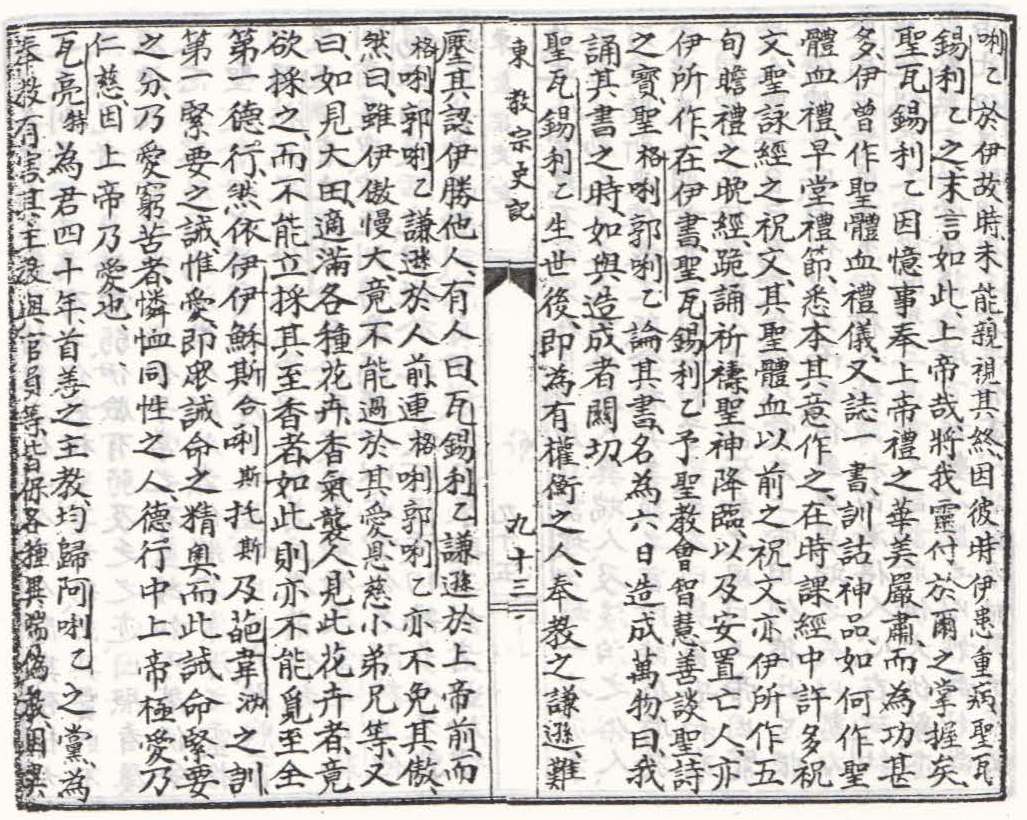 唎乙於伊故時、未能親視其終、因彼時伊患重病、聖瓦
錫利乙之末言如此、上帝哉、將我靈付於爾之掌握矣、
聖瓦錫利乙因憶事奉上帝禮之華美嚴肅、而為功甚
多、伊曾作聖體血禮儀、又誌一書、訓諸神品如何作聖
體血禮、早堂禮節、悉本其意作之、在時課經中許多祝
文、聖詠經之祝文、其聖體血以前之祝文、亦伊所作、五
旬瞻禮之晚經、跪誦祈禱、聖神降臨、以及安置亡人、亦
伊所作、在伊書、聖瓦錫利乙予聖教會智慧、善談聖詩
之寶、聖格唎郭唎乙論其書、名為六日造成萬物、曰、我
誦其書之時、如與造成者關切、
聖瓦錫利乙生世後、即為有權衡之人、奉教之謙遜、難
東教宗史記 九十三
壓其認伊勝他人、有人曰、瓦錫利乙謙遜於上帝前、而
格唎郭唎乙謙遜於人前、連格唎郭唎乙亦不免其傲、
然曰、雖伊傲慢大、竟不能過於其愛恩慈小弟兄等、又
曰、如見大田、適滿各種花卉、香氣襲人、見此花卉者、竟
欲採之、而不能立採其至香者、如此則亦不能覓至全
第一德行、然依伊伊穌斯合唎斯托斯及葩韋泐之訓
第一緊要之誡、惟愛、即眾誡命之精奧、而此誡命緊要
之分、乃愛窮苦者、憐恤同性之人、德行中上帝極愛乃
仁慈、因上帝乃愛也
瓦亮特為君四十年、首善之主教、均歸阿唎乙之黨、為
奉教有害、其主設與官員等、皆保各種異端